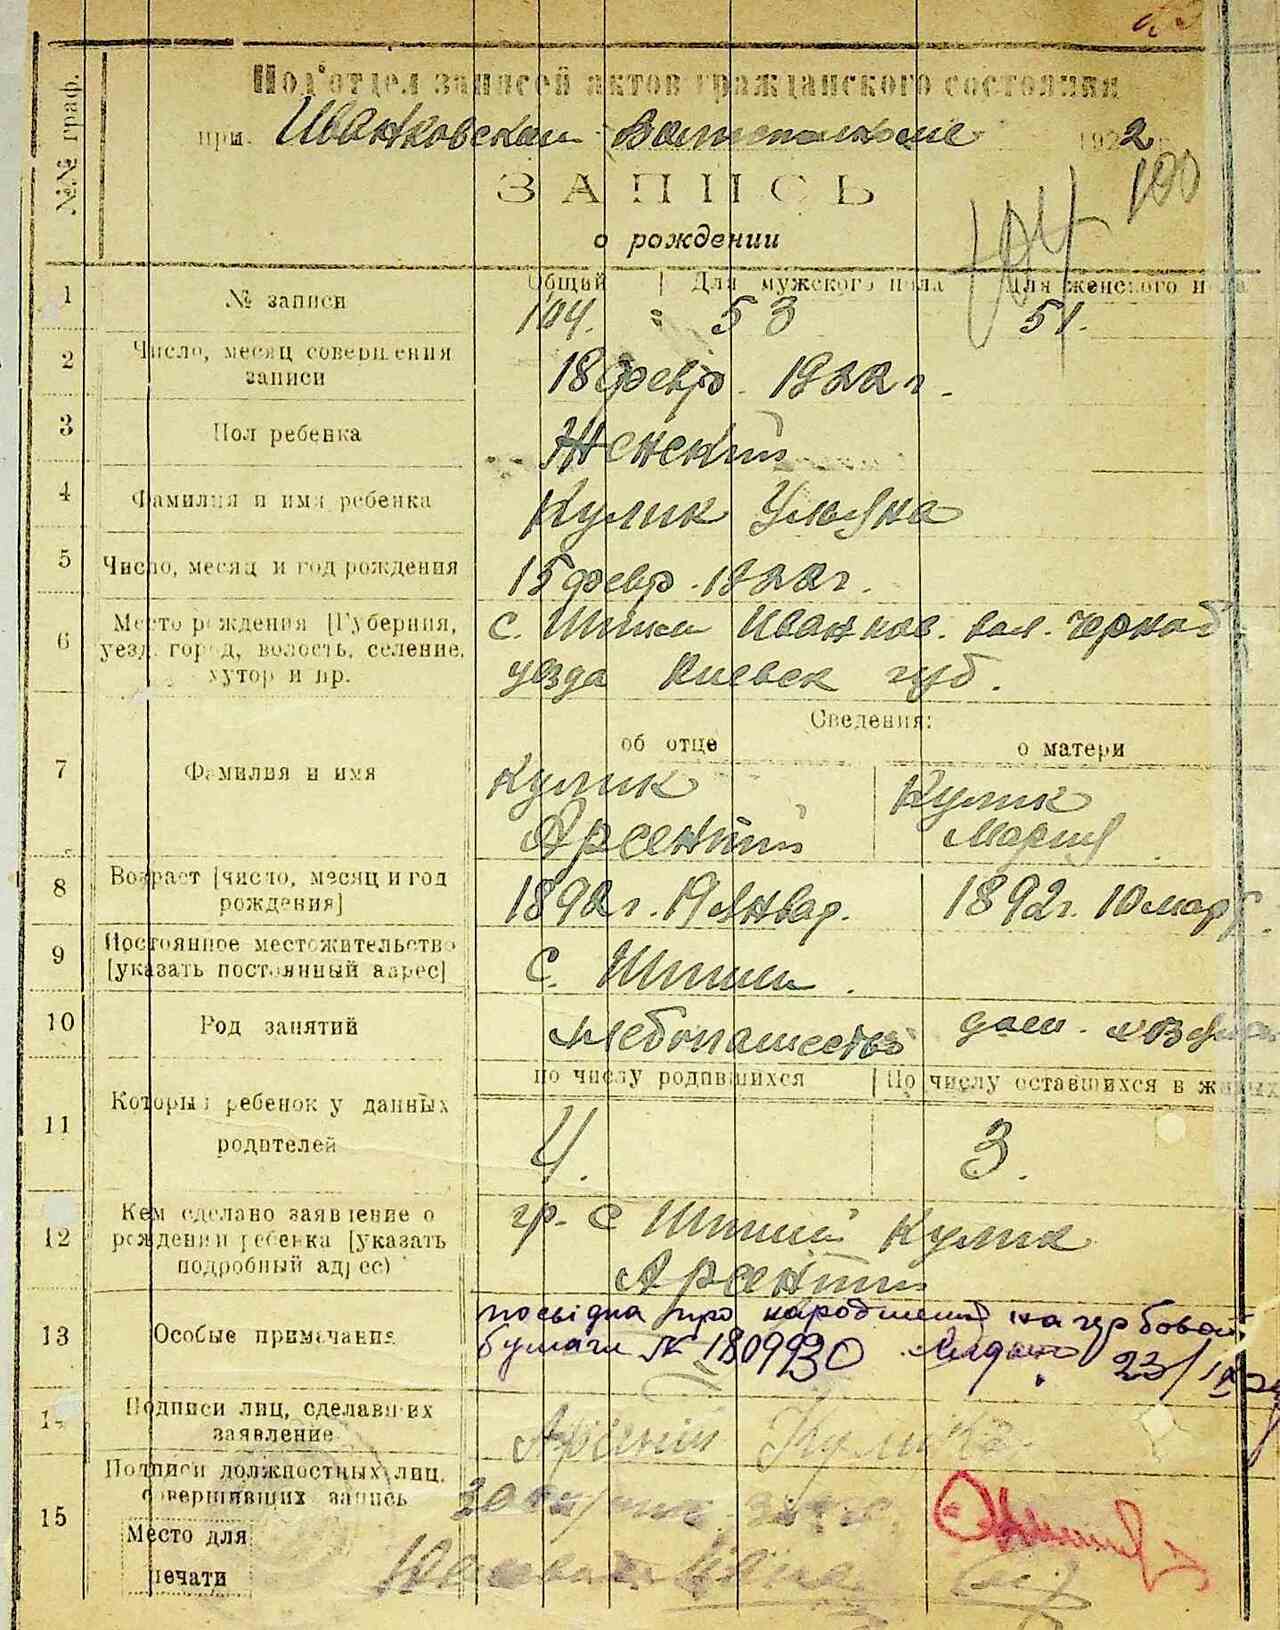 №№ граф.
Под'отдел записей актов гражданского состояния
при Иванковском 1922
ЗАПИСЬ
о рождении
100
104
1 № записи Общий Для мужского пола Для женского пола
104. 53 51.
2 Число, месяц совершения записи 18 февр. 1922 г.
3 Пол ребенка Женский
4 Фамилия и имя ребенка Кулик Ульяна
5 Число, месяц и год рождения 15 февр. 1922 г.
6 Место рождения [Губерния, с. Шпили Иванков. вол. Черноб
уезд, город, волость, селение, уезда Киевск губ.
хутор и пр.
Сведения:
об отце о матери
7 Фамилия и имя Кулик Кулик
Арсентий Мария
8 Возраст [число, месяц и год рождения] 1892 г. 19 январ. 1892 г. 10 мар
9 Постоянное местожительство с. Шпили.
[указать постоянный адрес]
10 Род занятий хлебопашество дом.
по числу родившихся По числу оставшихся в живых
11 Который ребенок у данных родителей 4. 3.
12 Кем сделано заявление о гр. с Шпили Кулик
рождении ребенка [указать Арсентий
подробный адрес)
13 Особые примечания посвідка про народження на гербовой
бумаги № 180930 23/
14 Подписи лиц, сделавших Арсений Кулик
заявление
15 Подписи должностных лиц,
совершивших запись
Место для
печати